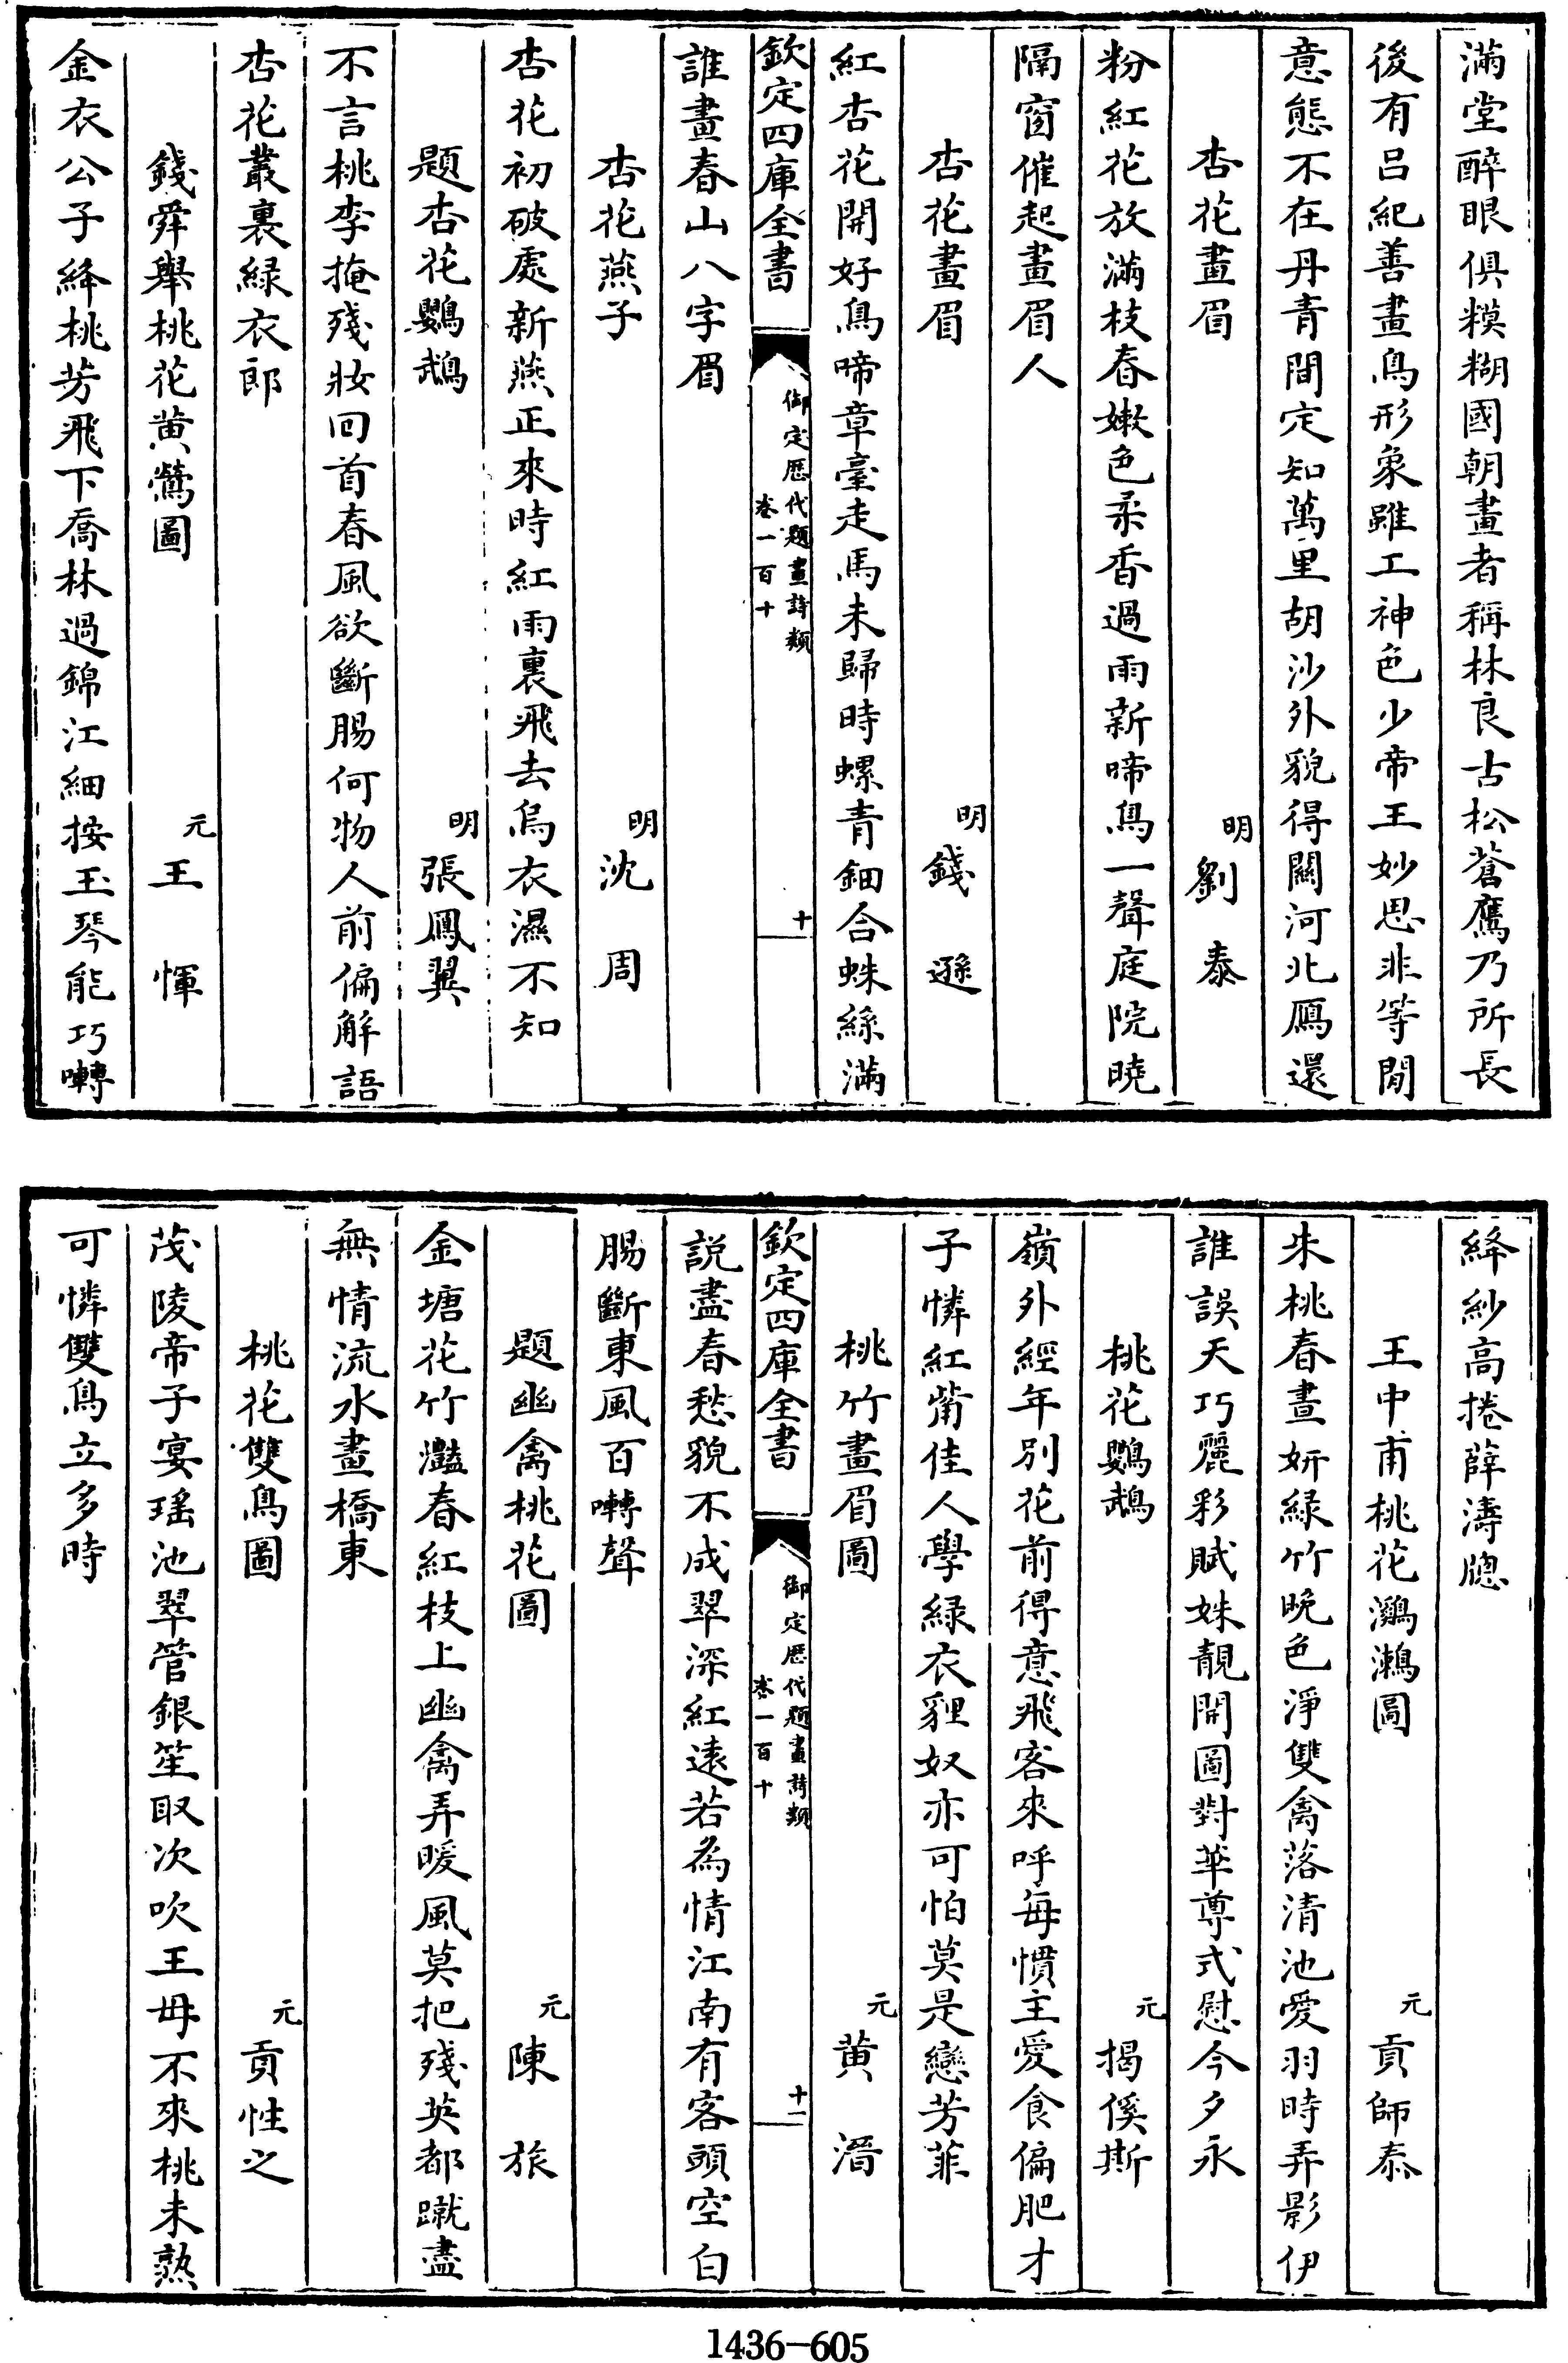 滿堂醉眼俱糢糊國朝畫者稱林良古松蒼鷹乃所長
後有吕紀善畫鳥形象雖工神色少帝王妙思非等閒
意態不在丹青間定知萬里胡沙外貌得關河北鴈還
杏花畫眉 明 劉泰
粉紅花放滿枝春嫩色柔香過雨新啼鳥一聲庭院曉
隔窗催起畫眉人
杏花畫眉 明 錢遜
紅杏花開好鳥啼章臺走馬未歸時螺青鈿合蛛絲滿
欽定四庫全書 御定歴代題畫詩類 卷一百十 十
誰畫春山八字眉
杏花燕子 明 沈周
杏花初破處新燕正來時紅雨裏飛去烏衣濕不知
題杏花鸚鵡 明 張鳳翼
不言桃李掩殘妝回首春風欲斷腸何物人前偏解語
杏花叢裏緑衣郎
錢舜舉桃花黄鶯圖 元 王惲
金衣公子絳桃芳飛下喬林過錦江細按玉琴能巧囀
絳紗高捲薛濤牕
王中甫桃花鸂鶒圖 元 貢師泰
朱桃春晝妍緑竹晚色淨雙禽落清池愛羽時弄影伊
誰誤天巧麗彩賦姝靚開圖對華尊式慰今夕永
桃花鸚鵡 元 揭傒斯
嶺外經年别花前得意飛客來呼每慣主愛食偏肥才
子憐紅觜佳人學緑衣貍奴亦可怕莫是戀芳菲
桃竹畫眉圖 元 黄溍
欽定四庫全書 御定歴代題畫詩類 卷一百十 十一
説盡春愁貌不成翠深紅遠若為情江南有客頭空白
腸斷東風百囀聲
題幽禽桃花圖 元 陳旅
金塘花竹灩春紅枝上幽禽弄暖風莫把殘英都蹴盡
無情流水畫橋東
桃花雙鳥圖 元 貢性之
茂陵帝子宴瑶池翠管銀笙取次吹王母不來桃未熟
可憐雙鳥立多時
1436-605